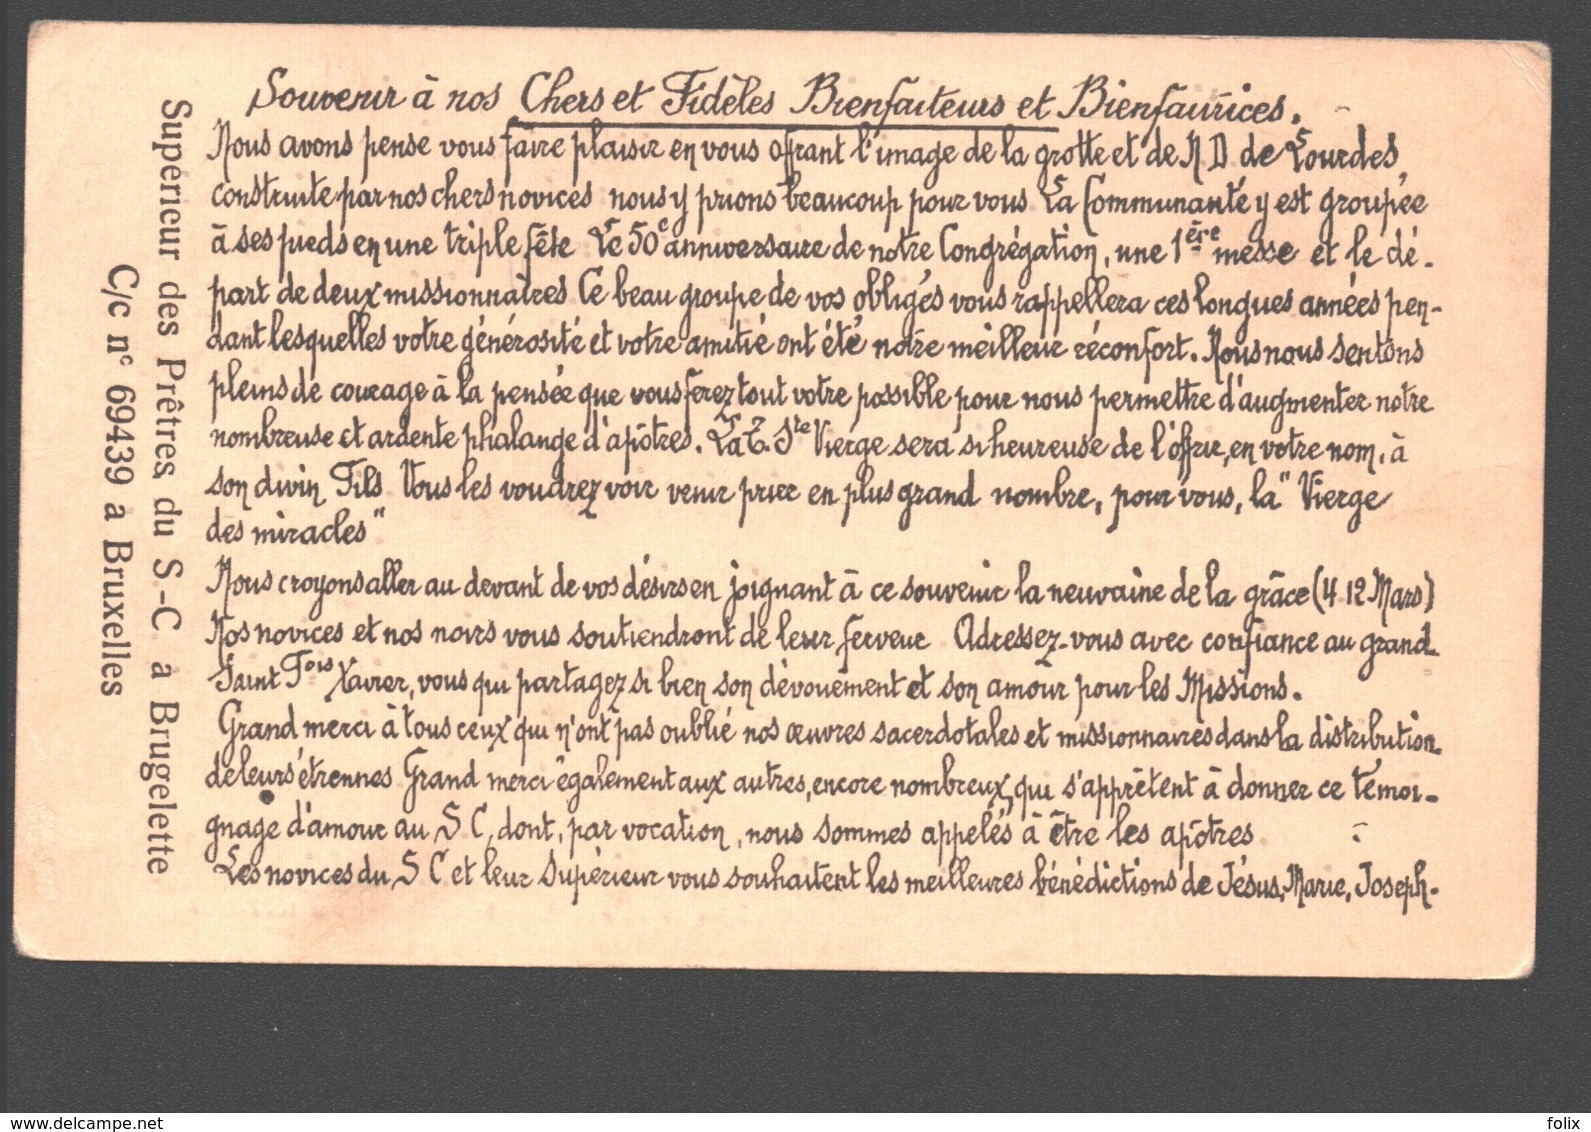 Souvenir à nos Chers et Fidèles Bienfaiteurs et Bienfaitrices.
Nous avons pensé vous faire plaisir en vous offrant l'image de la grotte et de N D de Lourdes,
construite par nos chers novices nous y prions beaucoup pour vous La Communauté y est groupée
à ses pieds en une triple fête Le 50e anniversaire de notre Congrégation, une 1ère messe et le dé-
part de deux missionnaires Ce beau groupe de vos obligés vous rappellera ces longues années pen-
dant lesquelles votre générosité et votre amitié ont été notre meilleur réconfort. Nous nous sentons
pleins de courage à la pensée que vous ferez tout votre possible pour nous permettre d'augmenter notre
nombreuse et ardente phalange d'apôtres. La T. Ste Vierge sera si heureuse de l'offrir, en votre nom, à
son divin Fils Vous les voudrez voir venir prier en plus grand nombre, pour vous, la "Vierge
des miracles"
Nous croyons aller au devant de vos désirs en joignant à ce souvenir la neuvaine de la grâce (4 12 Mars)
Nos novices et nos noirs vous soutiendront de leur ferveur Adressez-vous avec confiance au grand
Saint Fois Xavier, vous qui partagez si bien son dévouement et son amour pour les Missions.
Grand merci à tous ceux qui n'ont pas oublié nos œuvres sacerdotales et missionnaires dans la distribution
de leurs étrennes Grand merci également aux autres, encore nombreux, qui s'apprêtent à donner ce témoi-
gnage d'amour au S C, dont, par vocation, nous sommes appelés à être les apôtres
Les novices du S C et leur Supérieur vous souhaitent les meilleures bénédictions de Jésus, Marie, Joseph-
Supérieur des Prêtres du S-C a Brugelette
C/c nº 69439 a Bruxelles
www.delcampe.net
folix